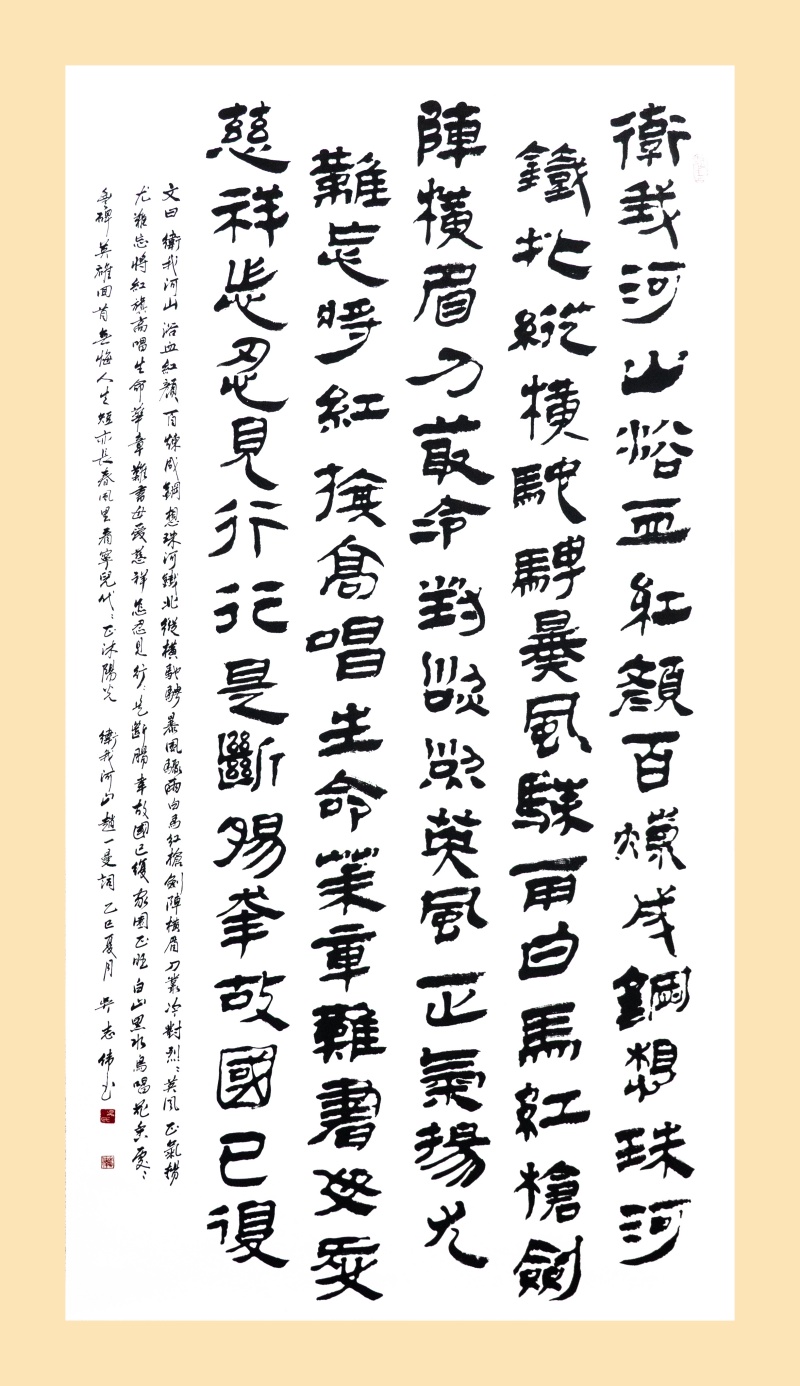 衛我河山浴血紅顏百煉成鋼想珠河
鐵北縱橫馳騁暴風驟雨白馬紅槍劍
陣橫眉刀叢冷對烈烈英風正氣揚尤
難忘將紅旗高唱生命華章難書母愛
慈祥怎忍見行行是斷腸幸故國已復
文曰衛我河山浴血紅顏百煉成鋼想珠河鐵北縱橫馳騁暴風驟雨白馬紅槍劍陣橫眉刀叢冷對烈〻英風正氣揚
尤難忘將紅旗高唱生命華章難書母愛慈祥怎忍見行〻是斷腸幸故國已復家園正旺白山黑水鳥唱花香處〻
豐碑英雄回首無悔人生短亦長春風里看寧兒代〻正沐陽光 衛我河山趙一曼詞 乙巳夏月 吳志偉書